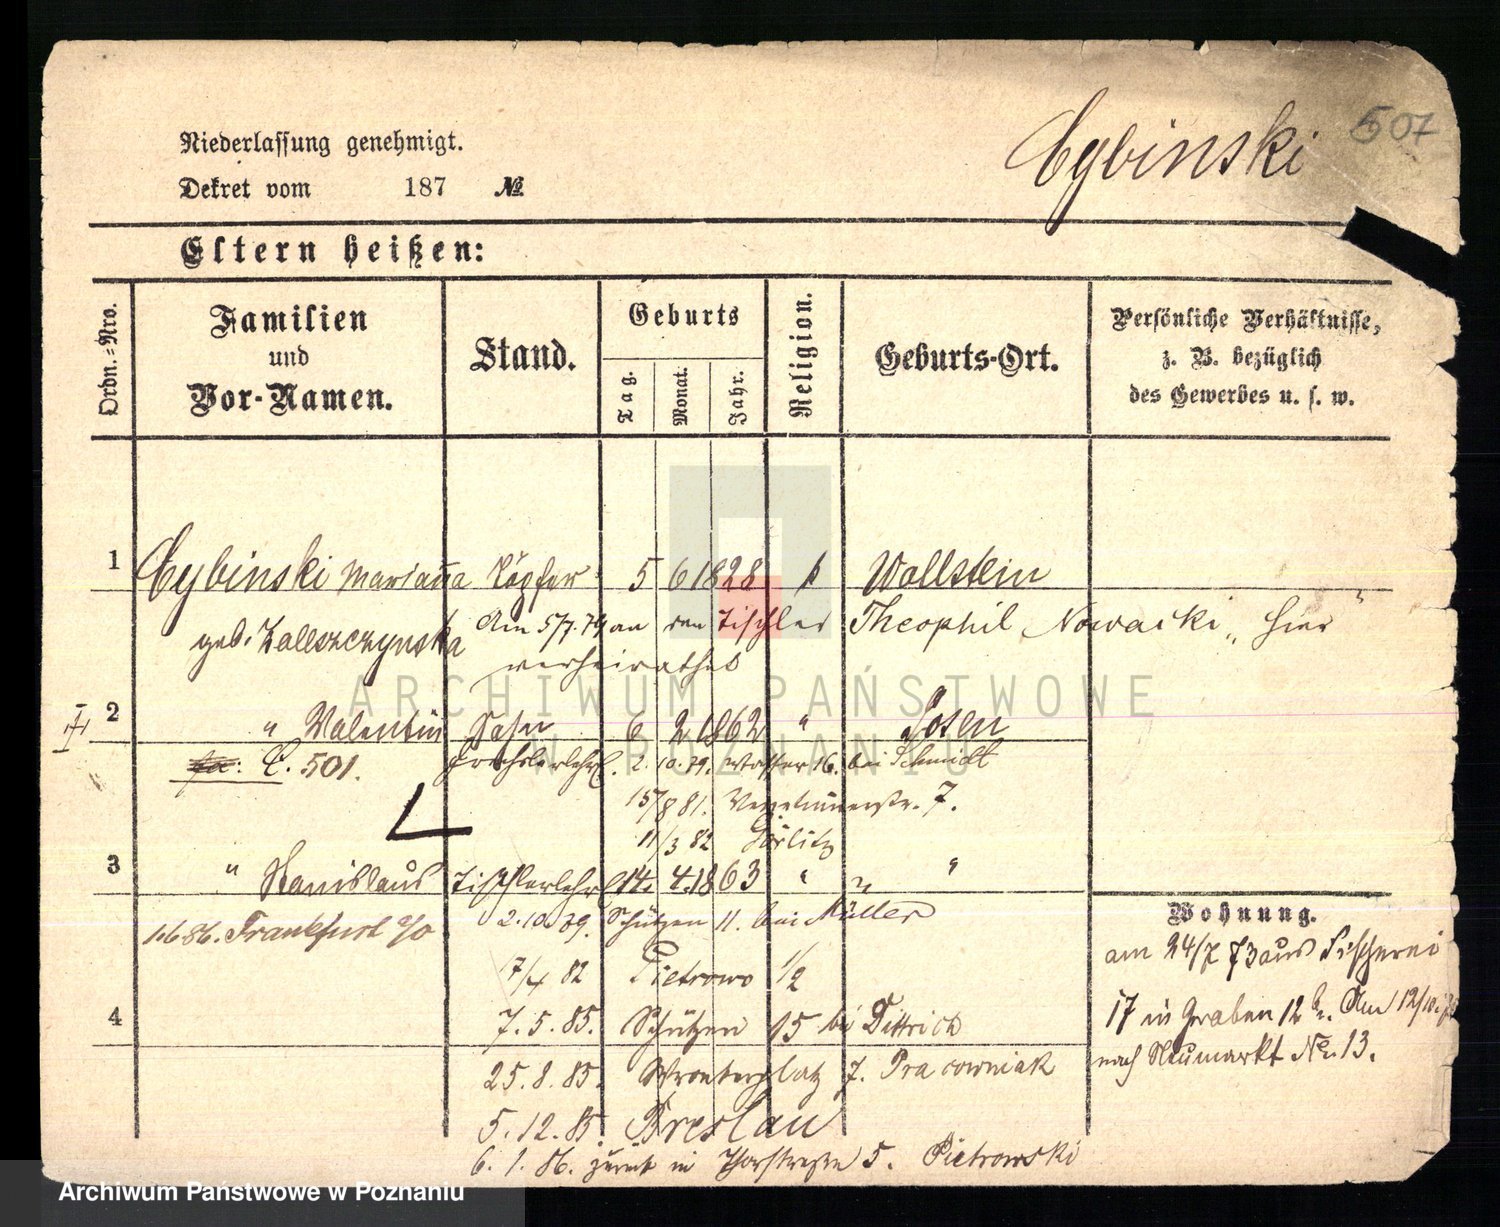 Cybinski 507
Niederlassung genehmigt.
Dekret vom 187 №
Eltern heißen:
Ordn.=Nro.
Familien
und
Vor-Namen.
Stand.
Geburts
Tag.
Monat.
Jahr.
Religion.
Geburts-Ort.
Persönliche Verhältnisse,
z. B. bezüglich
des Gewerbes u. s. w.
1 Cybinski Marianna 5 6 1828 k Wollstein
geb. Zalleszczynska Am 5/7. 79 an den Tischler Theophil Nowacki "hier"
verheirathet
2 " Valentin Sohn 6 2 1862 " Posen
C. 501. Drechslerlehrl. 2. 10. 79. Wasser 16. bei Schmidt
15/8 81. 7.
11/3 82 Görlitz
3 " Stanislaus Tischlerlehrl. 14. 4. 1863 " " "
1.6 86. Frankfurt a/o 2. 10. 79. Schützen 11. bei Müller
7/4 82 Pietrowo 1/2
4 7. 5. 85. Schützen 15 bei Dittrich
25. 8. 85. Wronkerplatz 7. Pracowniak
5. 12. 85. Breslau
6. 1. 86. zurück in Thorstraße 5. Pietrowski
Wohnung.
am 24/7 73 aus Fischerei
17 in Graben 12 b. Am 12/10.
nach Neumarkt No. 13.
ARCHIWUM PAŃSTWOWE
W POZNANIU
Archiwum Państwowe w Poznaniu